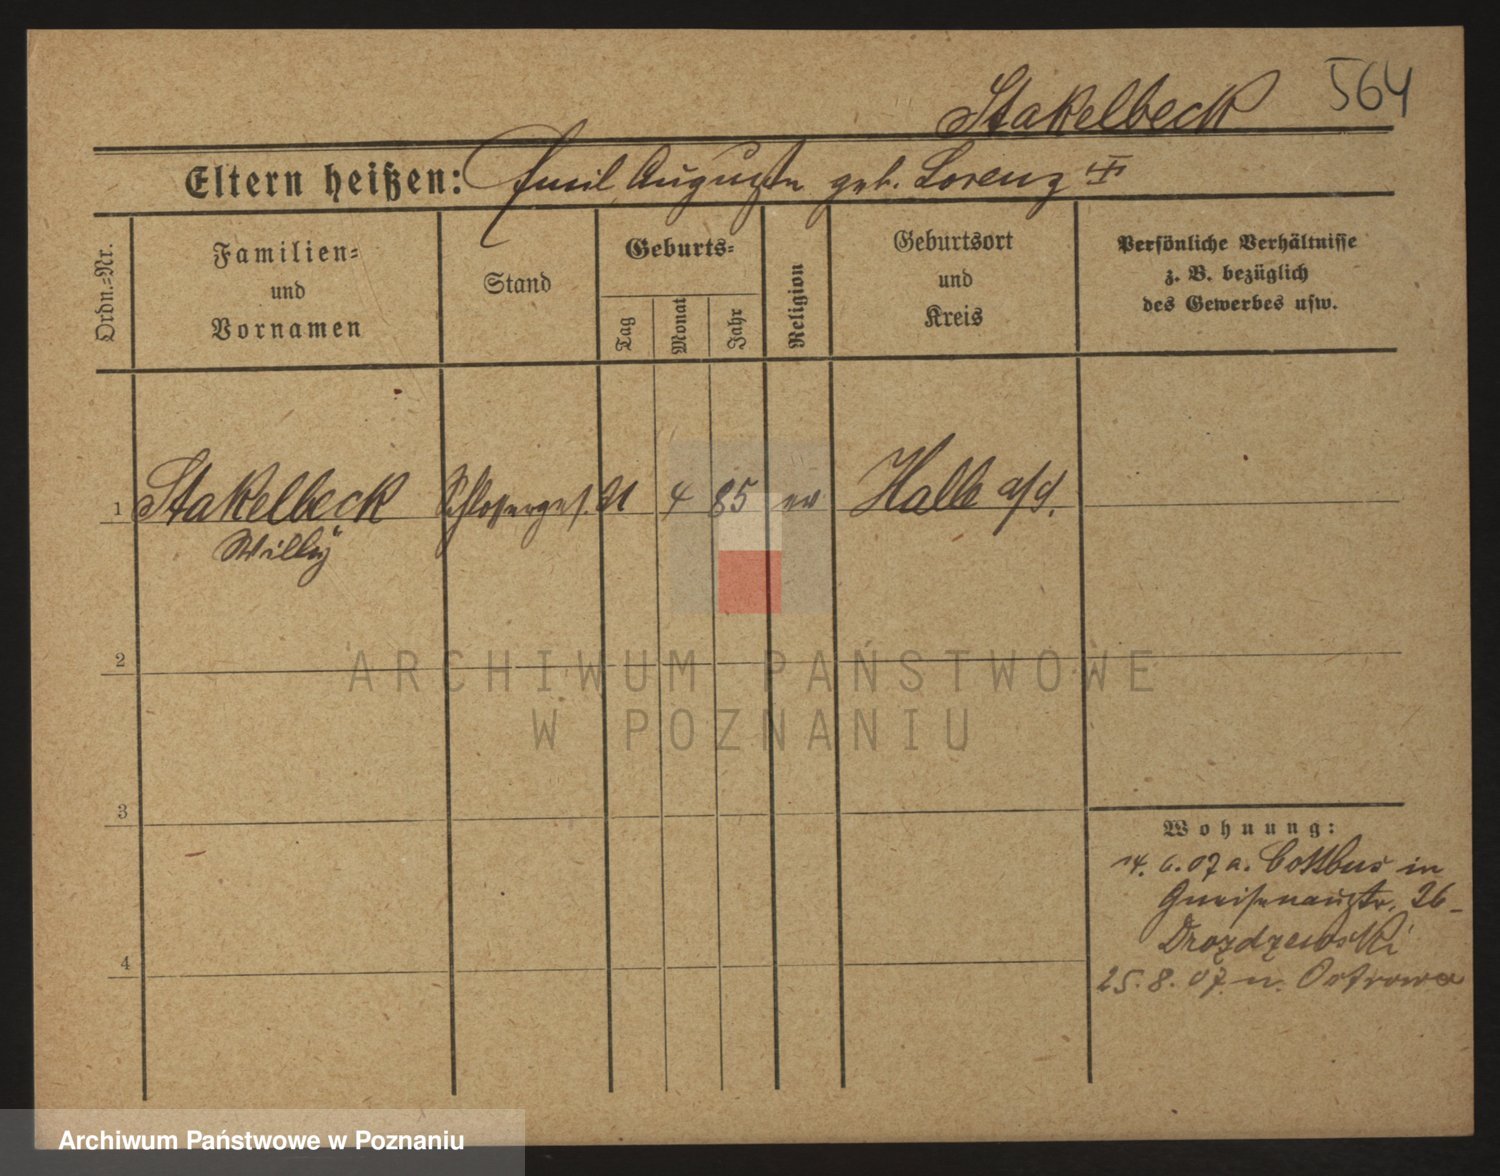 564
Stakelbeck
Eltern heißen: Emil Auguste geb. Lorenz
Ordn.=Nr.
Familien=
und
Vornamen
Stand
Geburts=
Tag
Monat
Jahr
Religion
Geburtsort
und
Kreis
Persönliche Verhältnisse
z. B. bezüglich
des Gewerbes usw.
1 Stakelbeck Schlosserges. 21 4 85 ev Halle a/S.
Willy
2
ARCHIWUM PAŃSTWOWE
W POZNANIU
3
Wohnung:
14. 6. 07 a. Cottbus in
Gneisenaustr. 26
Drozdzewski
4
25. 8. 07 n. Ostrowo
Archiwum Państwowe w Poznaniu